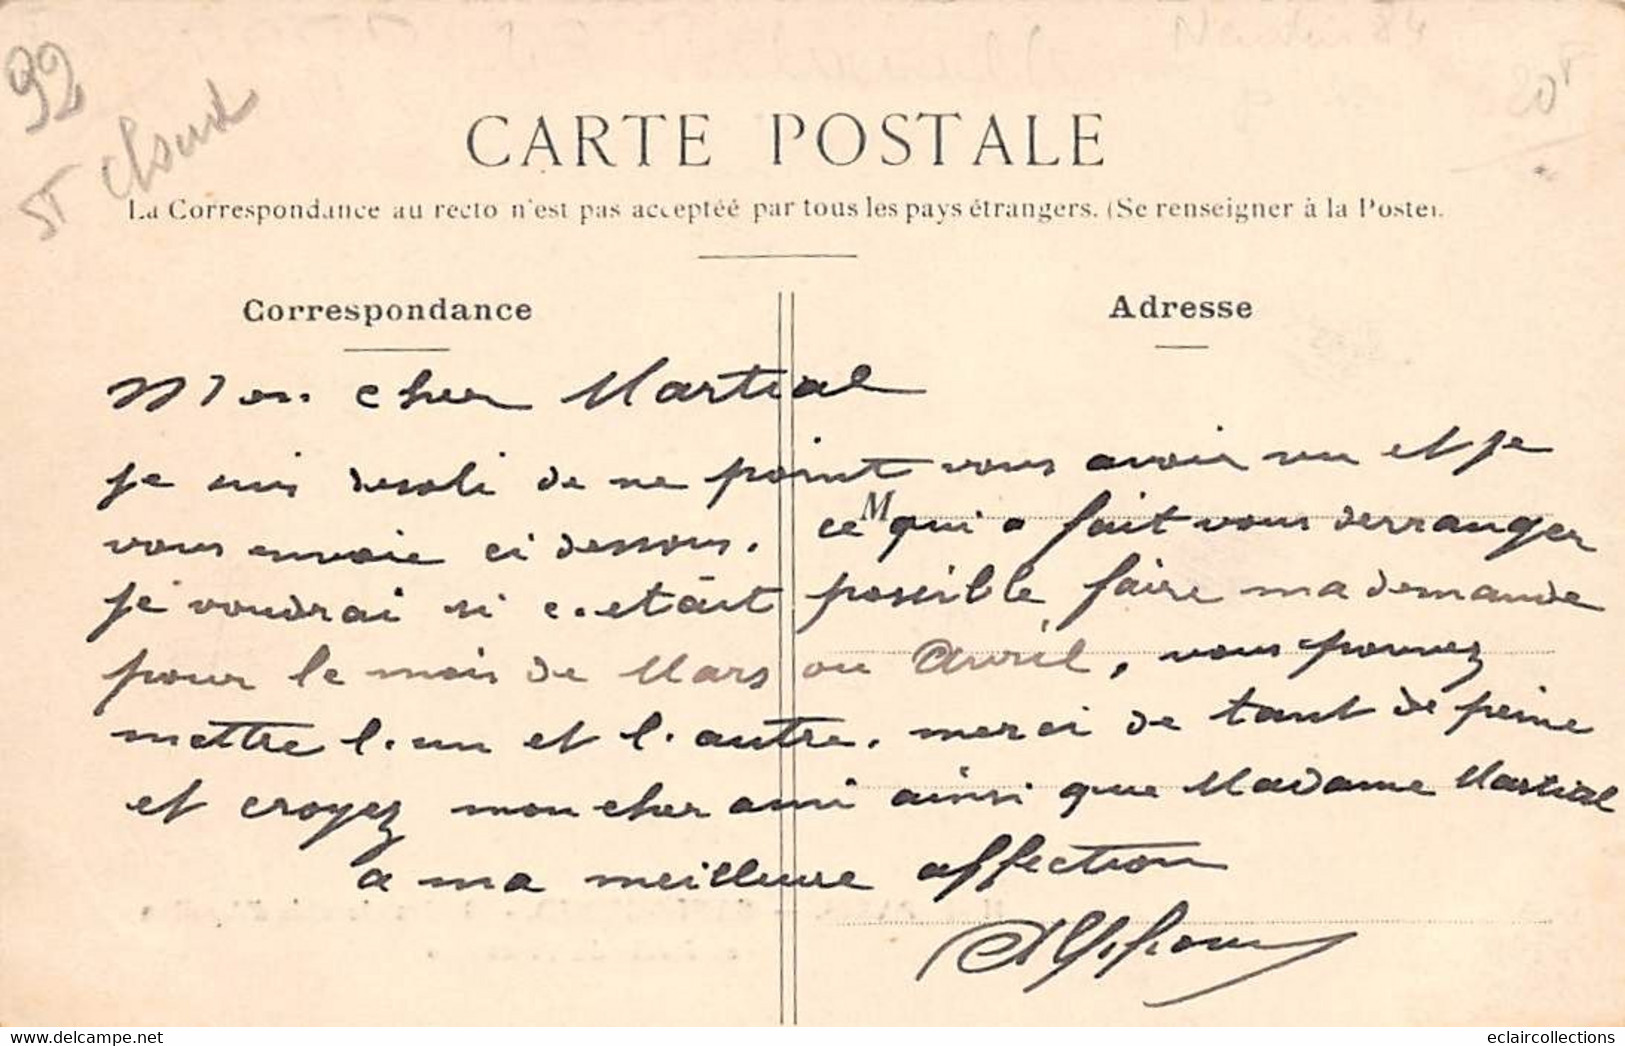 92
St Cloud
20F
CARTE POSTALE
La Correspondance au recto n'est pas acceptée par tous les pays étrangers. (Se renseigner à la Poste).
Correspondance
Adresse
M
Mon cher Martial
je suis desolé de ne point vous avoir vu et je
vous envoie ci dessous. ce qui a fait vous derranger
je voudrai si c.etait possible faire ma demande
pour le mois de Mars ou Avril, vous pouvez
mettre l.un et l.autre. merci de tant de peine
et croyez mon cher ami ainsi que Madame Martial
a ma meilleure affection
Alphonse
delcampe.net
eclaircollections